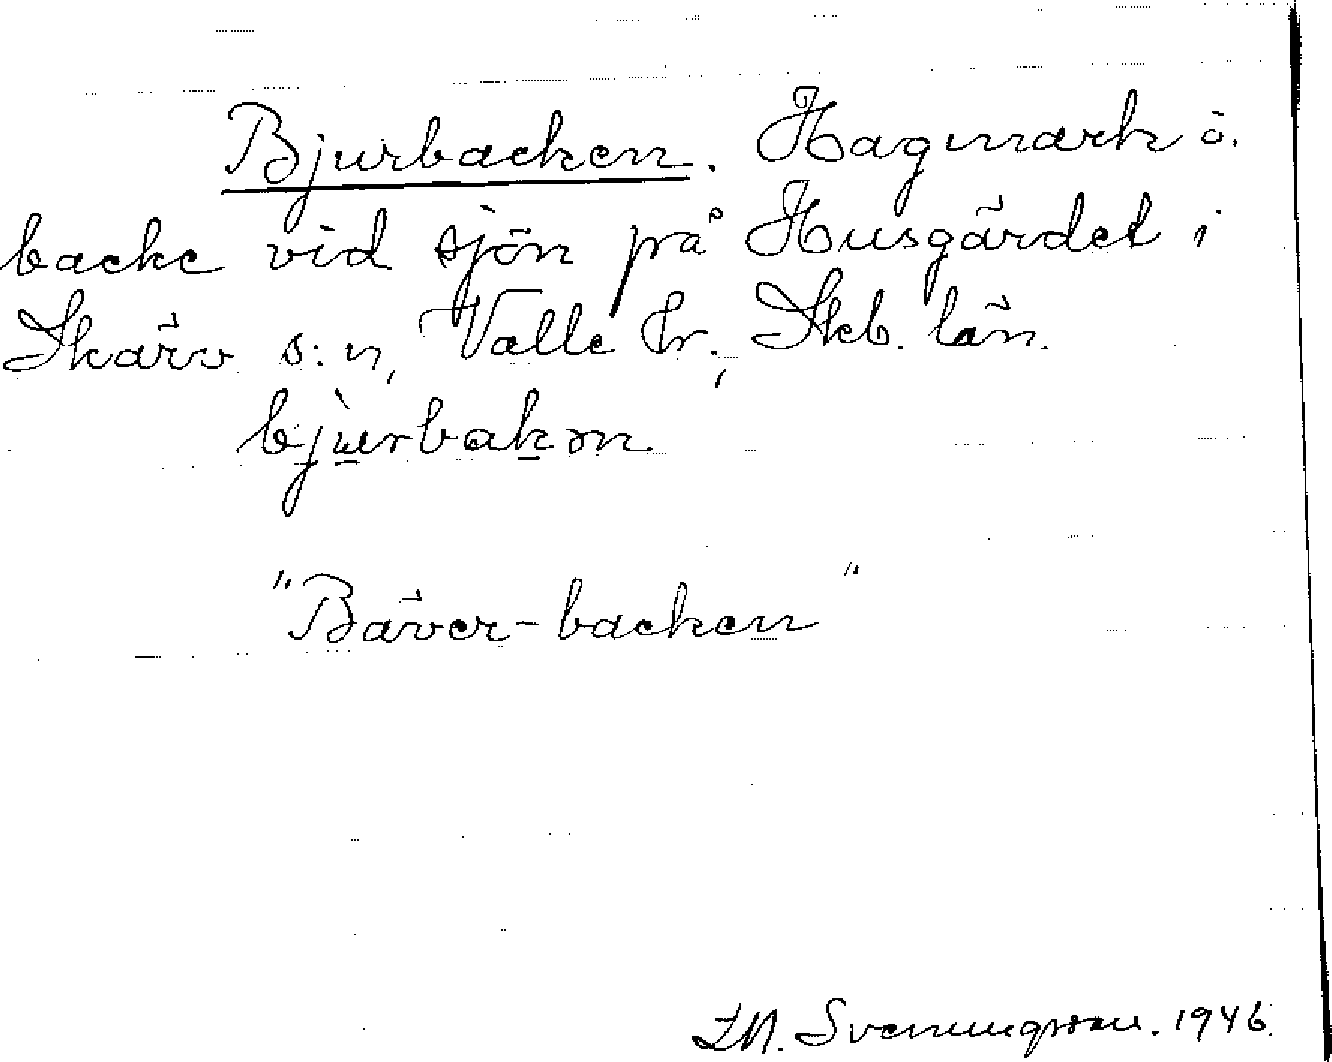 Bjurbacken. Hagmark o.
backe vid sjön på Husgärdet i
Skärv s:n, Valle hr., Skb. län.
bjùrbakən
"Bäver-backen"
I.M. Svenungsson. 1946.